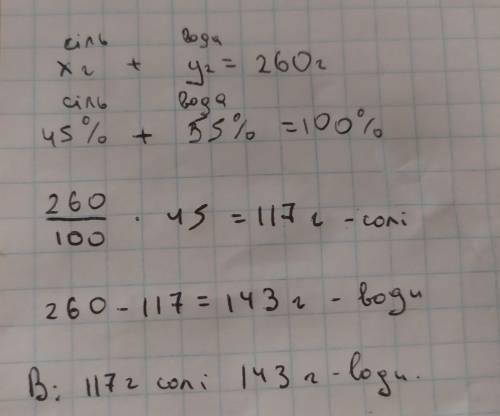 сіль вода
x г + y г = 260 г
сіль вода
45% + 55% = 100%
260/100 · 45 = 117 г - солі
260 - 117 = 143 г - води
В: 117 г солі 143 г - води.